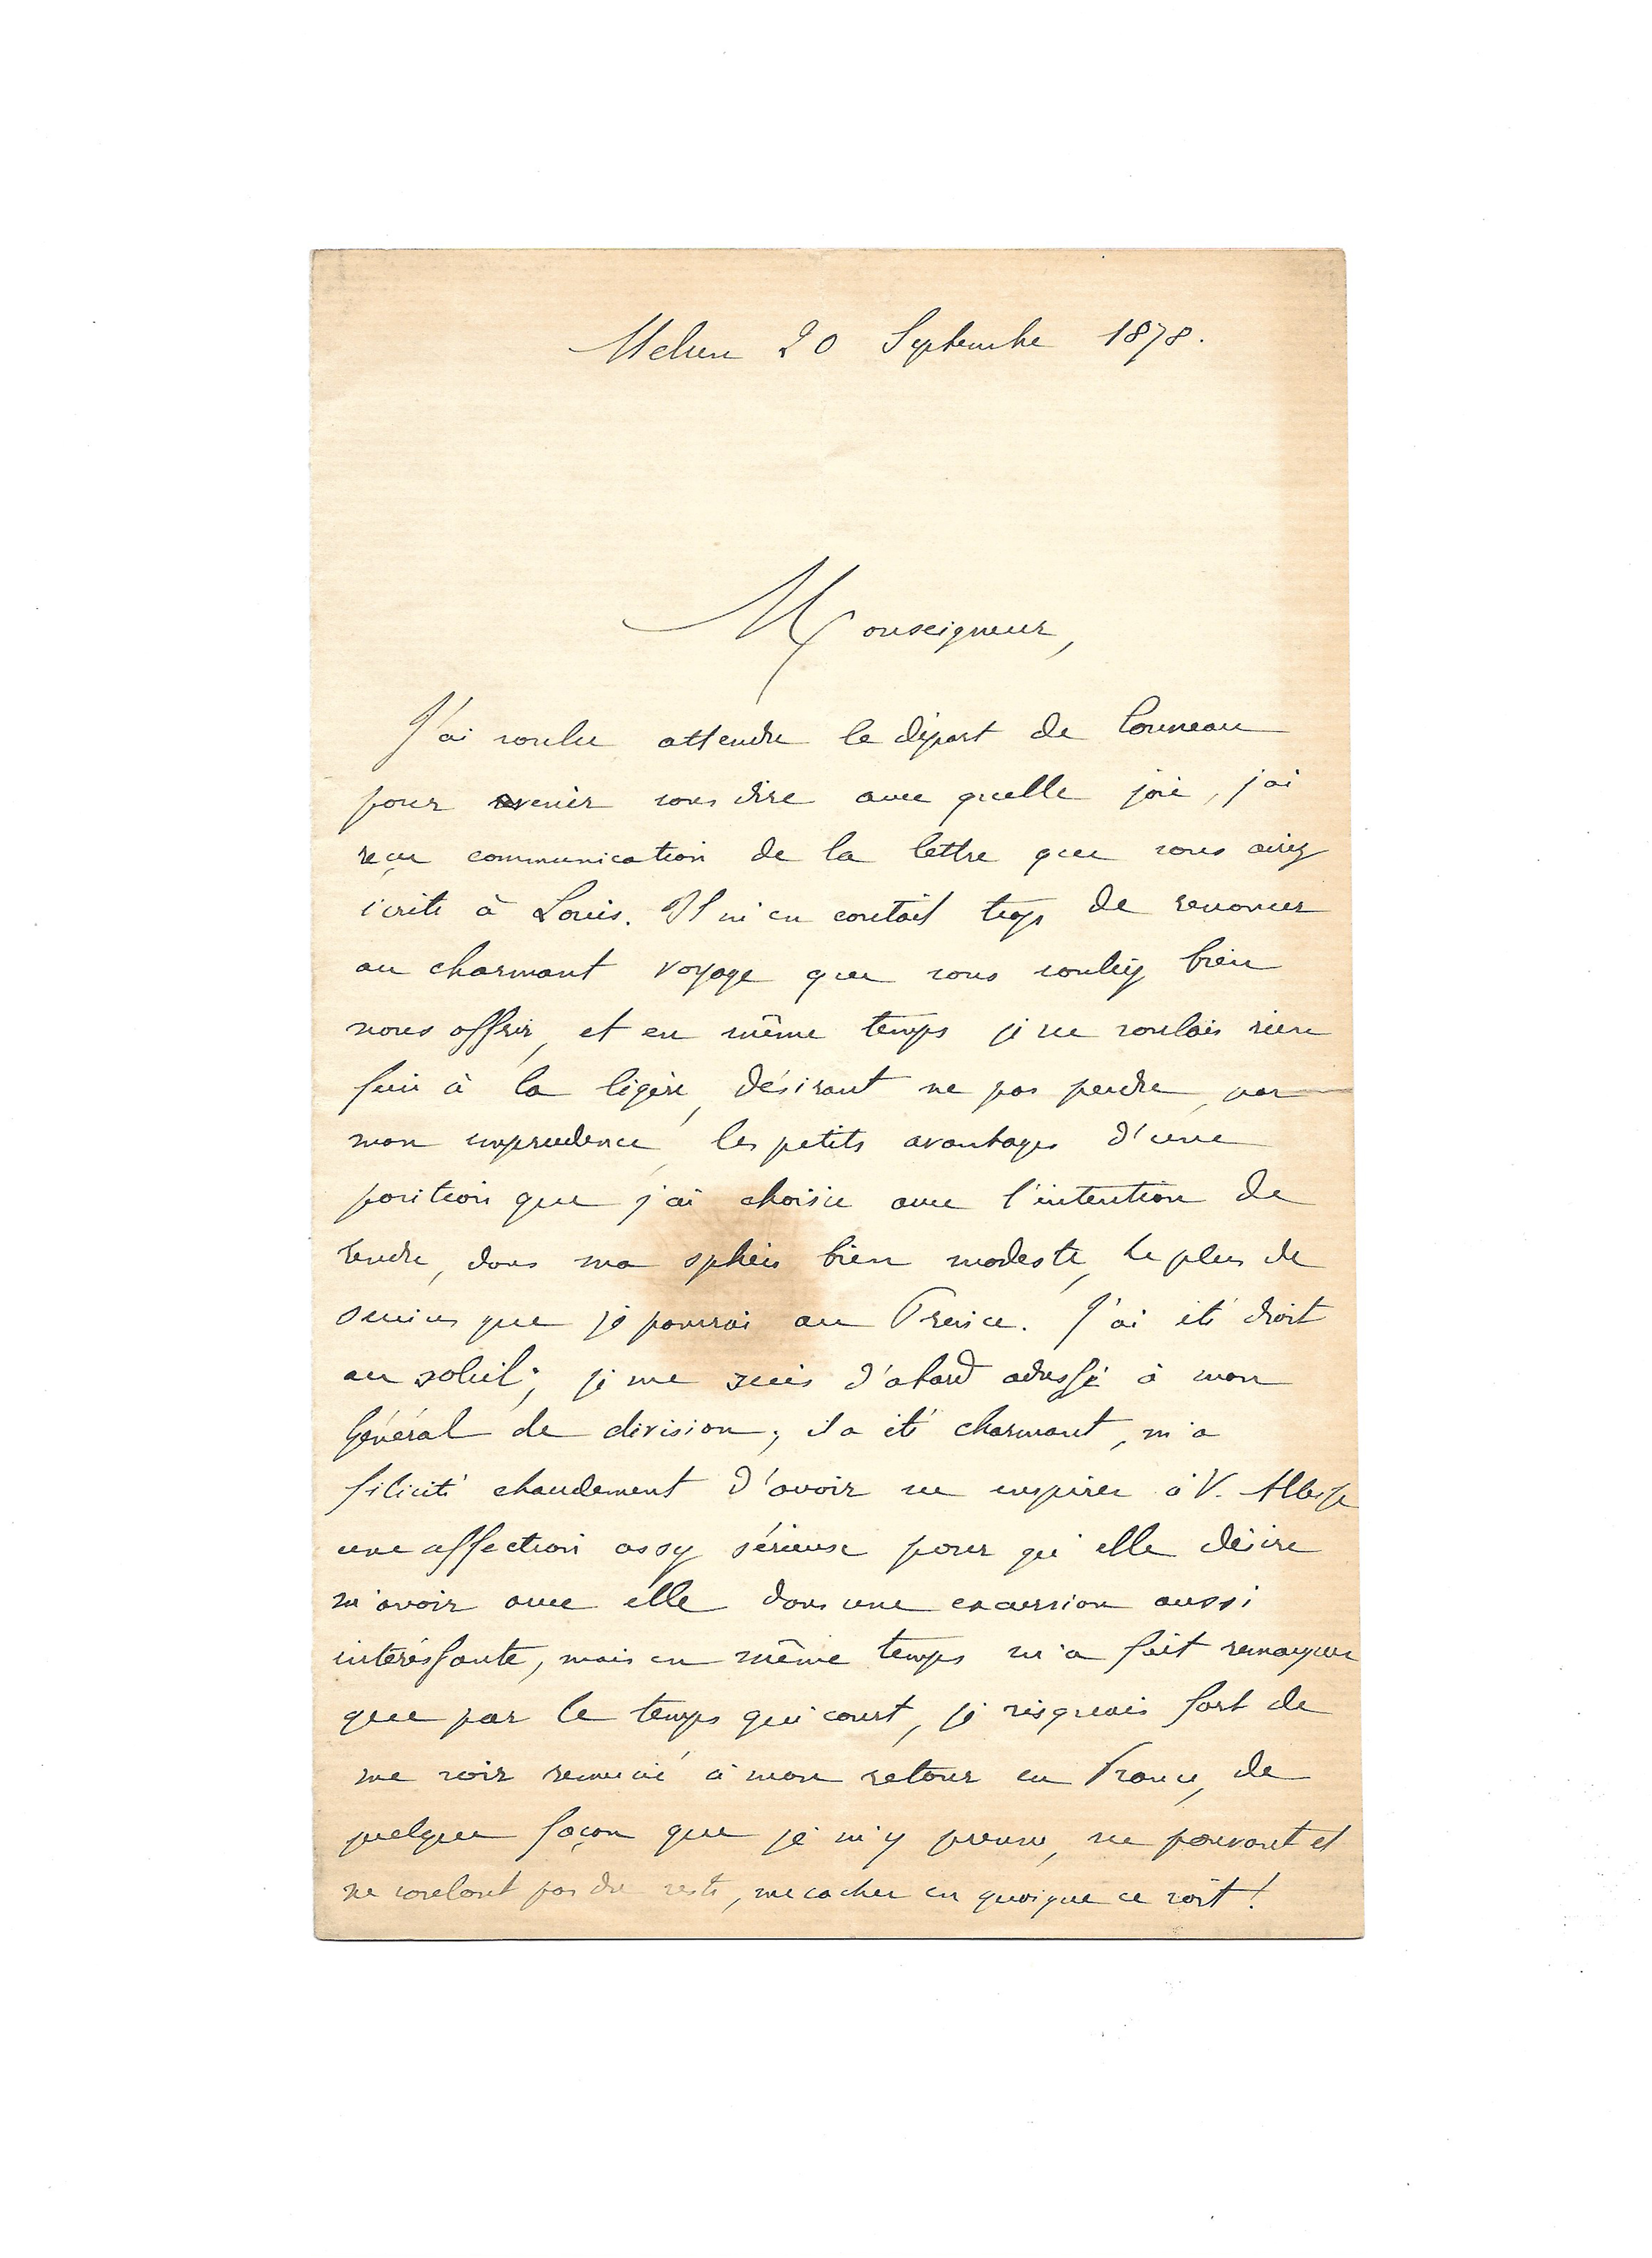 Melun 20 Septembre 1878.
Monseigneur,
J'ai voulu attendre le départ de Conneau
pour venir vous dire avec quelle joie, j'ai
reçu communication de la lettre que vous aviez
écrite à Louis. Il m'en coutait trop de renoncer
au charmant voyage que vous vouliez bien
nous offrir, et en même temps je ne voulais rien
faire à la légère, désirant ne pas perdre, par
mon imprudence, les petits avantages d'une
position que j'ai choisie avec l'intention de
rendre, dans ma sphère bien modeste, le plus de
services que je pourrai au Prince. J'ai été droit
au soleil; je me suis d'abord adressé à mon
Général de division; il a été charmant, m'a
félicité chaudement d'avoir su inspirer à V. Altesse
une affection assez sérieuse pour qu'elle désire
m'avoir avec elle dans une excursion aussi
intéressante, mais en même temps m'a fait remarquer
que par le temps qui court, je risquais fort de
me voir remercié à mon retour en France, de
quelque façon que je m'y prenne, ne pouvant et
ne voulant pas du reste, me cacher en quoique ce soit!